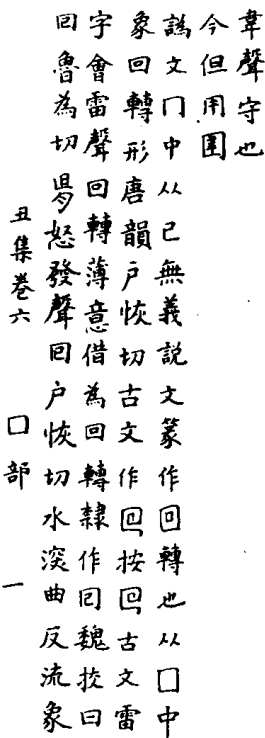 韋聲守也
今但用圍
譌文冂中从巳無義說文篆作回轉也从囗中
象回轉形唐韻戶恢切古文作按古文雷
字會雷聲回轉薄意借為回轉隸作囘魏挍曰
回魯為切怒發聲囘戶恢切水深曲反流象
丑集卷六 囗部 一